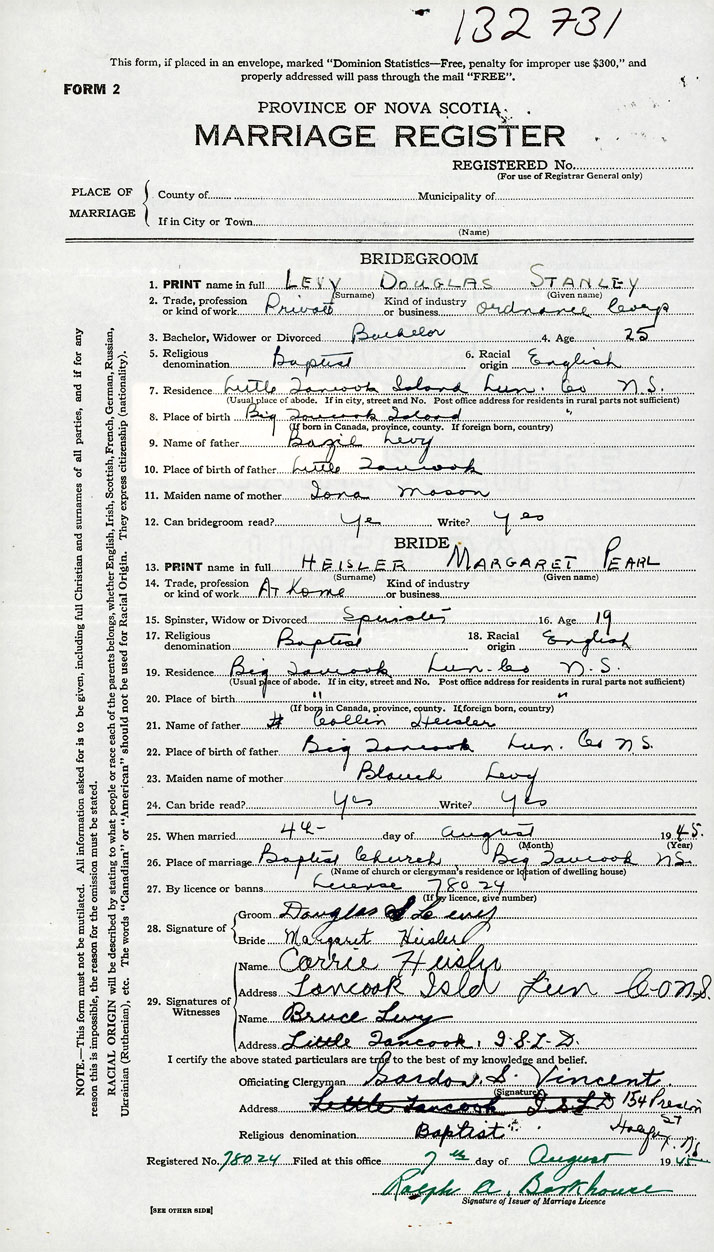 132731
This form, if placed in an envelope, marked "Dominion Statistics—Free, penalty for improper use $300," and
properly addressed will pass through the mail "FREE".
FORM 2
PROVINCE OF NOVA SCOTIA
MARRIAGE REGISTER
REGISTERED No.
(For use of Registrar General only)
PLACE OF MARRIAGE
County of Municipality of
If in City or Town
(Name)
BRIDEGROOM
1. PRINT name in full LEVY DOUGLAS STANLEY
(Surname) (Given name)
2. Trade, profession or kind of work Private Kind of industry or business Ordnance Corps
3. Bachelor, Widower or Divorced Bachelor 4. Age 25
5. Religious denomination Baptist 6. Racial origin English
7. Residence Little Tancook Island Lun. Co N.S.
(Usual place of abode. If in city, street and No. Post office address for residents in rural parts not sufficient)
8. Place of birth Big Tancook Island "
(If born in Canada, province, county. If foreign born, country)
9. Name of father Bazil Levy
10. Place of birth of father Little Tancook
11. Maiden name of mother Iona Mason
12. Can bridegroom read? Ye Write? Yes
BRIDE
13. PRINT name in full HEISLER MARGARET PEARL
(Surname) (Given name)
14. Trade, profession or kind of work At Home Kind of industry or business
15. Spinster, Widow or Divorced Spinster 16. Age 19
17. Religious denomination Baptist 18. Racial origin English
19. Residence Big Tancook Lun-Co N.S.
(Usual place of abode. If in city, street and No. Post office address for residents in rural parts not sufficient)
20. Place of birth " "
(If born in Canada, province, county. If foreign born, country)
21. Name of father Collin Heisler
22. Place of birth of father Big Tancook Lun. Co N.S.
23. Maiden name of mother Blanch Levy
24. Can bride read? Yes Write? Yes
25. When married 4th day of August 1945.
(Month) (Year)
26. Place of marriage Baptist Church Big Tancook N.S.
(Name of church or clergyman's residence or location of dwelling house)
27. By licence or banns License 78024
(If by licence, give number)
28. Signature of
Groom Douglas S Levy
Bride Margaret Heisler
29. Signatures of Witnesses
Name Corrie Heisler
Address Tancook Isld Lun Co N.S.
Name Bruce Levy
Address Little Tancook, I-S-L-D.
I certify the above stated particulars are true to the best of my knowledge and belief.
Officiating Clergyman Gordon S. Vincent
(Signature)
Address Little Tancook ISLD 154 Preston ST
Halifax. N.S.
Religious denomination Baptist
Registered No. 78024 Filed at this office 7th day of August 1945
Ralph A. Barkhouse
Signature of Issuer of Marriage Licence
[SEE OTHER SIDE]
NOTE.—This form must not be mutilated. All information asked for is to be given, including full Christian and surnames of all parties, and if for any
reason this is impossible, the reason for the omission must be stated.
RACIAL ORIGIN will be described by stating to what people or race each of the parents belongs, whether English, Irish, Scottish, French, German, Russian,
Ukrainian (Ruthenian), etc. The words "Canadian" or "American" should not be used for Racial Origin. They express citizenship (nationality).